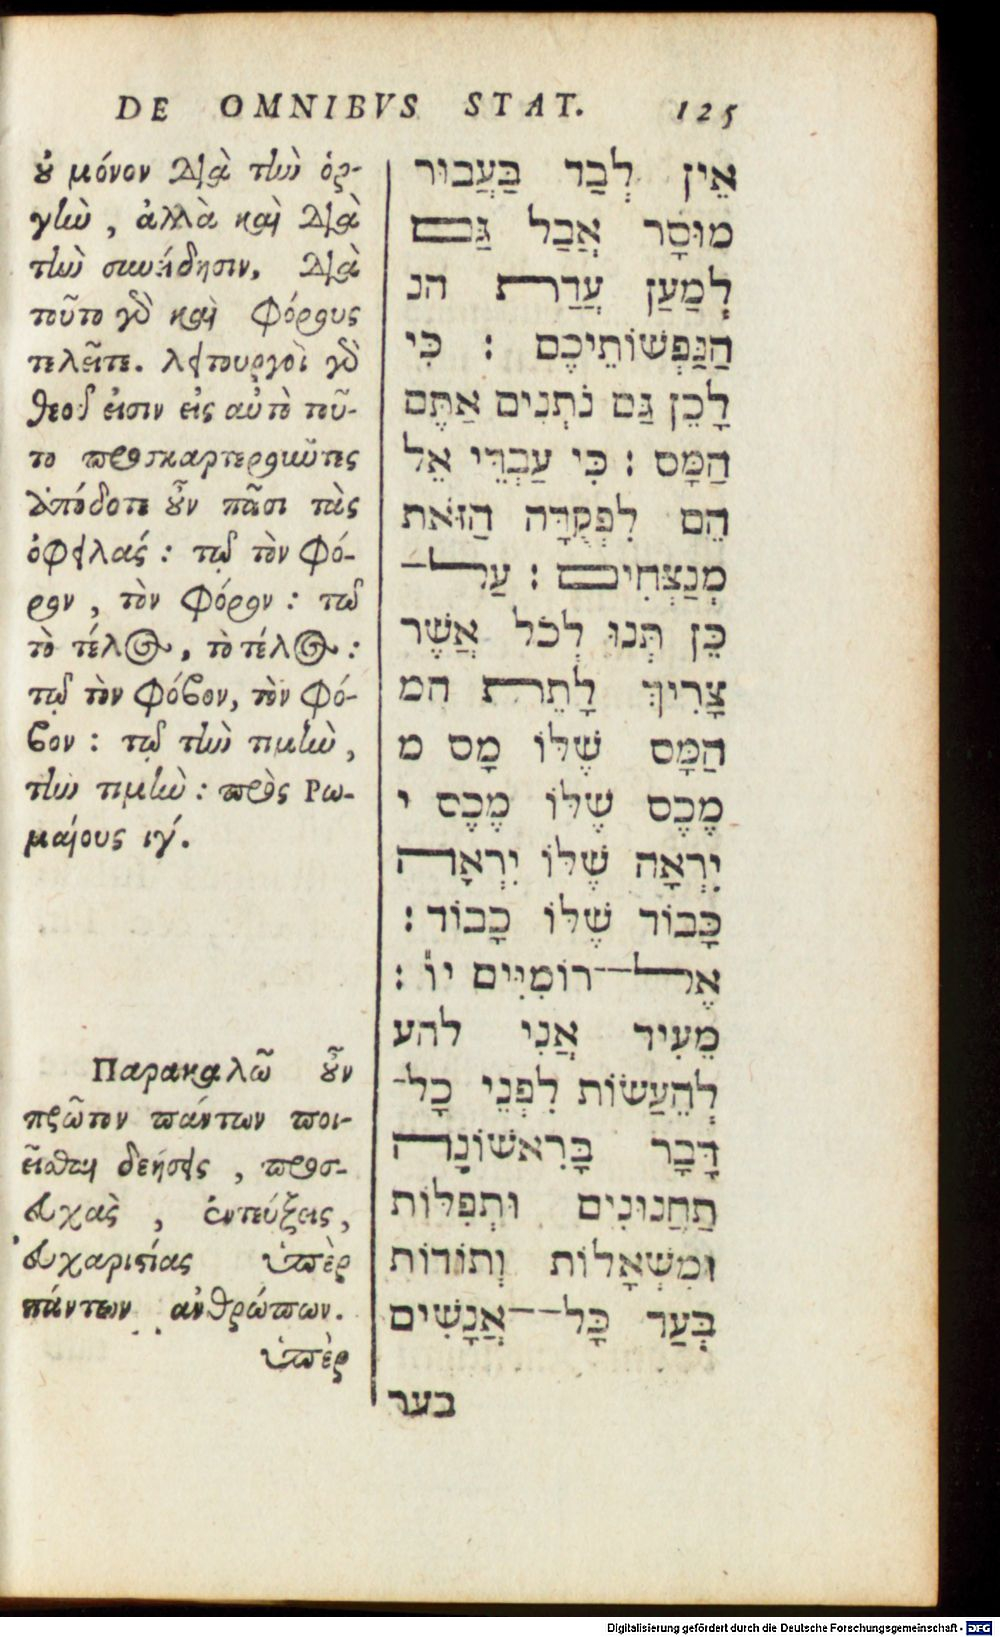 DE OMNIBVS STAT. 125
ȣ μόνον διὰ τὴν ὀρ-
γὴν, ἀλλὰ καὶ διὰ
τὴν συνείδησιν, διὰ
τοῦτο γὸ καὶ φόρους
τελεῖτε. λειτουργοὶ γὸ
θεοῦ εἰσιν εἰς αὐτὸ τοῦ-
το προσκαρτεροιῶτες
ἀπόδοτε ȣ̓͂ν πᾶσι τὰς
ὀφειλάς: τῷ τὸν φό-
ρον, τὸν φόρον: τῷ
τὸ τέλος, τὸ τέλος:
τῷ τὸν φόϐον, τὸν φό-
ϐον: τῷ τὴν τιμὴν,
τὴν τιμὴν: πρὸς Ρω-
μαίους ιγ΄.
Παρακαλῶ ȣ̓͂ν
πρῶτον πάντων ποι-
εῖσθαι δεήσεις, προσ-
ευχὰς, ἐντεύξεις,
εὐχαριστίας ὑπὲρ
πάντων ἀνθρώπων.
ὑπὲρ
אֵין לְבַד בַּעֲבוּר
מוּסָר אֲבַל גַּם
לְמַעַן עֲדַת הנ
הַנַּפְשׁוֹתֵיכֶם : כִּי
לָכֵן גַּם נֹתְנִים אַתֶּם
הַמָּס : כִּי עַבְרֵי אֵל
הֵם לִפְקֻדָּה הַזּאֹת
מְנַצְּחִים : עַל
כֵּן תְּנוּ לְכֹל אֲשֶׁר
צָרִיךְ לָתֵת המ
הַמָּס שֶׁלּוֹ מָס מ
מֶכֶס שֶׁלּוֹ מֶכֶס י
יִרְאָה שֶׁלּוֹ יִרְאָה
כָּבוֹד שֶׁלּוֹ כָבוֹד :
אֶל־רוֹמִיִּים יו :
מֵעִיד אֲנִי להע
לְהֵעַשׂוֹת לִפְנֵי כָל־
דָּבָר בָּרִאשׁוֹנָה
תַּחֲנוּנִים וּתְפִלּוֹת
וּמִשְׁאָלוֹת וְתוֹדוֹת
בְּעַד כָּל־אֲנָשִׁים
בער
Digitalisierung gefördert durch die Deutsche Forschungsgemeinschaft - DFG